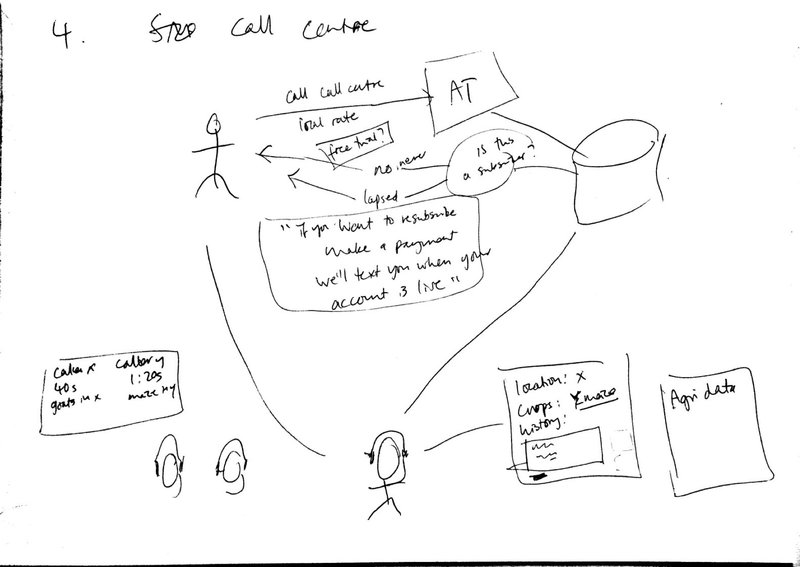 4. call centre
call call centre
local rate
AT
free trial?
no, never
is this
a subscriber?
lapsed
"if you want to resubscribe
make a payment
we'll text you when your
account is live"
caller x caller y
40s 1:20s
goats in x maze in y
location: x
crops: maze
history:
Agri data